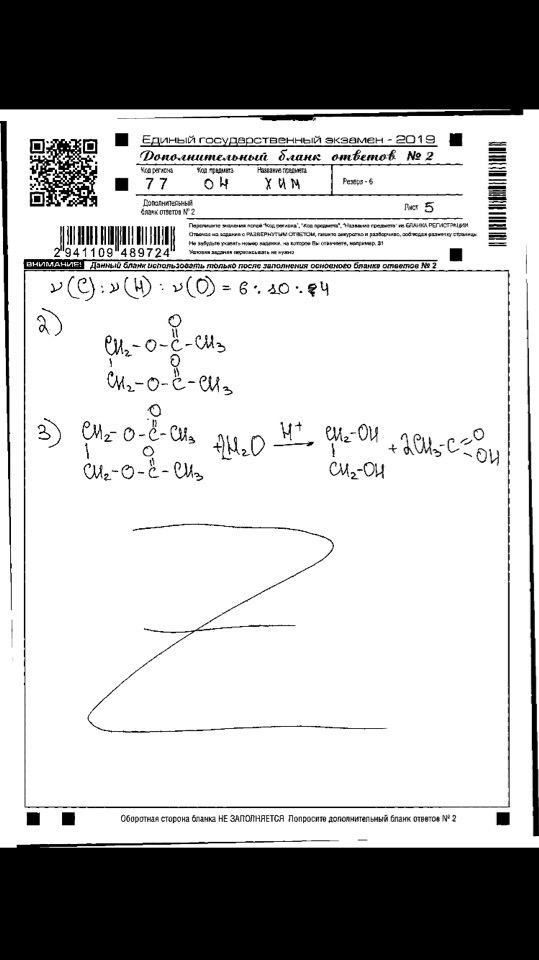 Единый государственный экзамен - 2019
Дополнительный бланк ответов № 2
Код региона Код предмета Название предмета
77 04 ХИМ Резерв - 6
Дополнительный
бланк ответов № 2
Лист 5
Перепишите значения полей "Код региона", "Код предмета", "Название предмета" из БЛАНКА РЕГИСТРАЦИИ
Отвечая на задания с РАЗВЕРНУТЫМ ОТВЕТОМ, пишите аккуратно и разборчиво, соблюдая разметку страницы
Не забудьте указать номер задания, на которое Вы отвечаете, например, 31
Условия задания переписывать не нужно
2941109489724
ВНИМАНИЕ! Данный бланк использовать только после заполнения основного бланка ответов № 2
ν(C) : ν(H) : ν(O) = 6 : 10 : 4
2)
O
CH₂-O-C-CH₃
O
CH₂-O-C-CH₃
3)
O
CH₂-O-C-CH₃
O
CH₂-O-C-CH₃
+2H₂O
H⁺
CH₂-OH
CH₂-OH
+2CH₃-C
O
OH
Оборотная сторона бланка НЕ ЗАПОЛНЯЕТСЯ Попросите дополнительный бланк ответов № 2